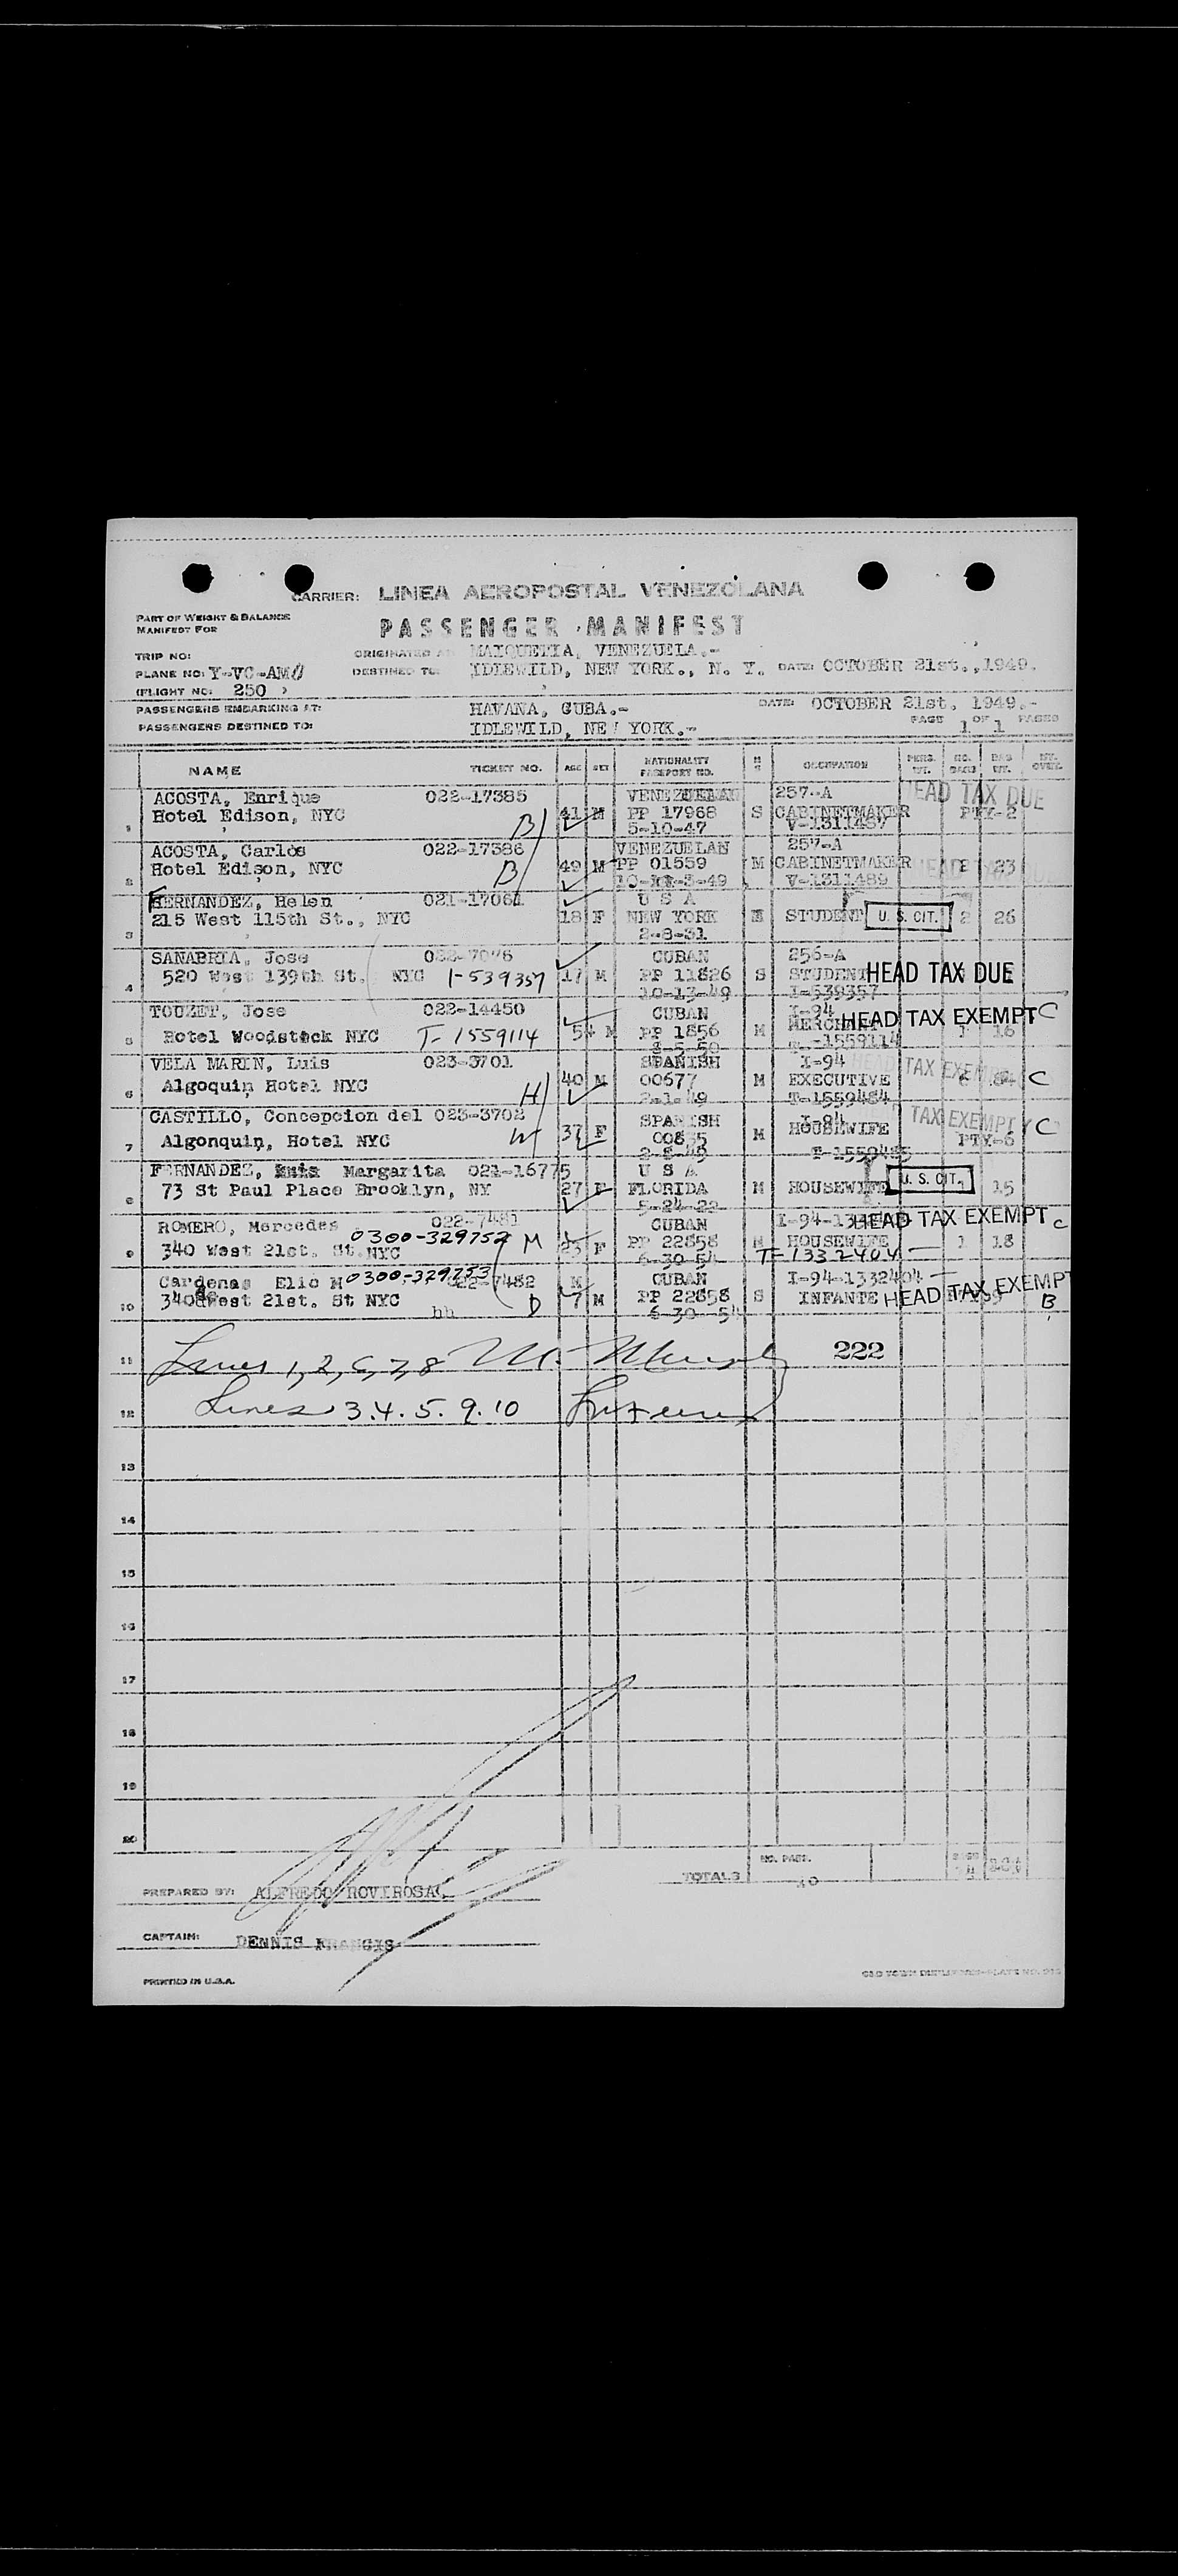 CARRIER: LINEA AEROPOSTAL VENEZOLANA
PART OF WEIGHT & BALANCE
MANIFEST FOR
PASSENGER MANIFEST
TRIP NO: ORIGINATED AT MAIQUETIA, VENEZUELA.-
PLANE NO: Y-VC-AM DESTINED TO: IDLEWILD, NEW YORK., N. Y. DATE: OCTOBER 21st.,1949.
(FLIGHT NO: 250 )
PASSENGERS EMBARKING AT: HAVANA, CUBA.- DATE: OCTOBER 21st. 1949.-
PASSENGERS DESTINED TO: IDLEWILD, NEW YORK.- PAGE 1 OF 1 PAGES
NAME TICKET NO. AGE SEX NATIONALITY PASSPORT NO. M S OCCUPATION PERS. WT. NO. BAGS BAG WT.
ACOSTA, Enrique 022-17385 VENEZUELAN 257-A HEAD TAX DUE
1 Hotel Edison, NYC B 41 M PP 17968 S CABINETMAKER PTY-2
5-10-47 V-1311487
ACOSTA, Carlos 022-17386 VENEZUELAN 257-A
2 Hotel Edison, NYC B 49 M PP 01559 M CABINETMAKER 2 23
V-1311489
HERNANDEZ, Helen 021-17061 U S A
3 215 West 115th St., NYC 18 F NEW YORK STUDENT U. S. CIT. 2 26
2-8-31
SANABRIA, Jose CUBAN 256-A
4 520 West 139th St. NYC I-539357 17 M PP 11826 S STUDENT HEAD TAX DUE
10-13-49 I-539357
TOUZET, Jose 022-14450 CUBAN I-94
5 Hotel Woodstock NYC T-1559114 54 M PP 1856 M MERCHANT HEAD TAX EXEMPT C
1 16
T-1559114
VELA MARIN, Luis 023-3701 SPANISH I-94
6 Algoquin Hotel NYC H 40 M 00677 M EXECUTIVE HEAD TAX EXEMPT C
2-1-49 T-1559484
CASTILLO, Concepcion del 023-3702 SPANISH I-94 TAX EXEMPT
7 Algonquin, Hotel NYC W 37 F M HOUSEWIFE PTY-6 C
FERNANDEZ, Margarita 021-16775 U S A
8 73 St Paul Place Brooklyn, NY 27 F FLORIDA M HOUSEWIFE U. S. CIT. 15
5-24-22
ROMERO, Mercedes 022-7481 CUBAN HEAD TAX EXEMPT C
9 340 West 21st. St NYC 0300-329752 M F PP 22858 HOUSEWIFE 1 18
6-30-54 T-1332404
Cardenas Elio M 0300-329753 022-7482 CUBAN I-94-1332404
10 340 West 21st. St NYC D 7 M PP 22858 S INFANTE HEAD TAX EXEMPT B
hh 6-30-54
11 Lines 1, 2, 6, 7, 8 222
12 Lines 3.4.5.9.10
13
14
15
16
17
18
19
20
TOTALS NO. PASS. 10
PREPARED BY: ALFREDO ROVIROSA
CAPTAIN: DENNIS FRANCIS
PRINTED IN U.S.A.